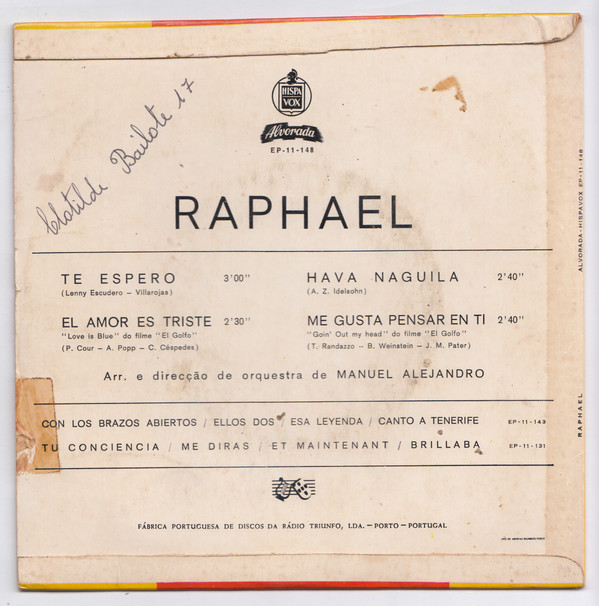 HISPA
VOX
Alvorada
EP-11-148
Clotilde Bailote 17
RAPHAEL
TE ESPERO 3'00"
(Lenny Escudero – Villarojas)
HAVA NAGUILA 2'40"
(A. Z. Idelsohn)
EL AMOR ES TRISTE 2'30"
"Love is Blue" do filme "El Golfo"
(P. Cour – A. Popp – C. Céspedes)
ME GUSTA PENSAR EN TI 2'40"
"Goin' Out my head" do filme "El Golfo"
(T. Randazzo – B. Weinstein – J. M. Pater)
Arr. e direcção de orquestra de MANUEL ALEJANDRO
CON LOS BRAZOS ABIERTOS / ELLOS DOS / ESA LEYENDA / CANTO A TENERIFE EP-11-143
TU CONCIENCIA / ME DIRAS / ET MAINTENANT / BRILLABA EP-11-131
FÁBRICA PORTUGUESA DE DISCOS DA RÁDIO TRIUNFO, LDA. — PORTO — PORTUGAL
ALVORADA - HISPAVOX EP-11-148
RAPHAEL